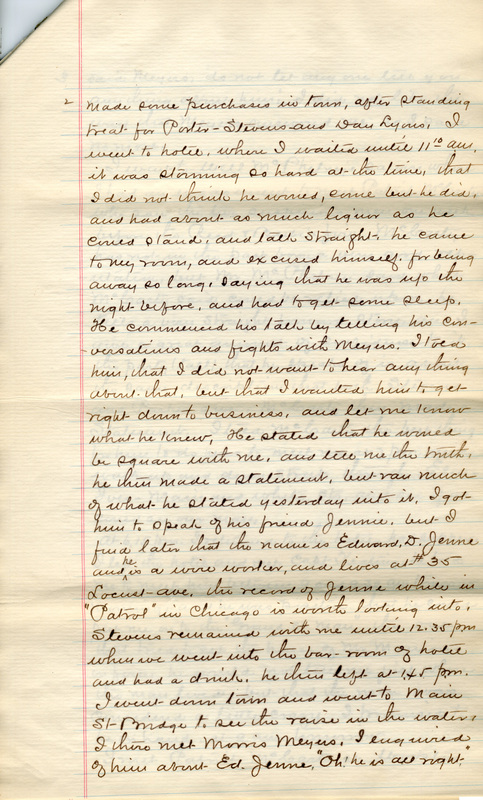 2 made some purchases in town, after standing
treat for Porter-Stevens and Dan Lyons. I
went to hotle. where I waited until 11 10 am.
it was storming so hard at the time, that
I did not think he woued, come but he did.
and had about as much liquor as he
coued stand, and talk straight. he came
to my room, and excused himself. for being
away so long, saying that he was up the
night before, and had to get some sleep.
He commenced his talk by telling his con-
-versations and fights with Meyers. I toed
him, that I did not want to hear any thing
about that, but that I wanted him to get
right down to business, and let me know
what he knew, He stated that he woued
be square with me, and tell me the truth.
he then made a statement, but ran much
of what he stated yesterday into it, I got
him to speak of his friend Jennie, but I
find later that the name is Edward, D. Jenne
and he is a wire worker, and lives at #35
Locust-ave, the record of Jenne while in
"Patrol" in Chicago is worth looking into.
Stevens remained with me until 12.35 pm
when we went into the bar-room of hotle
and had a drink. he then left at 1.45 pm.
I went down town and went to Main
St-Bridge to see the raise in the water,
I there met Morris Meyers, I enquired
of him about Ed. Jenne, "Oh! he is all right"